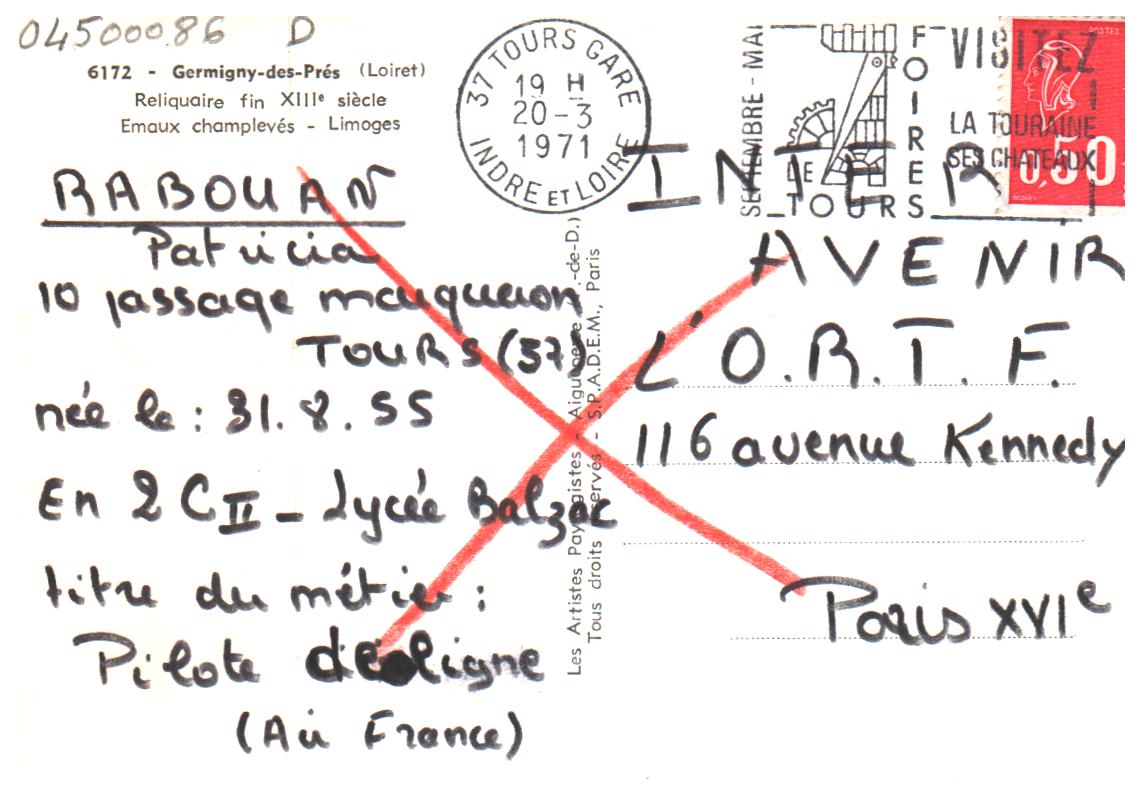 04500086 D
6172 - Germigny-des-Prés (Loiret)
Reliquaire fin XIIIe siècle
Emaux champlevés - Limoges
37 TOURS GARE
19 H
20-3
1971
INDRE ET LOIRE
SEPTEMBRE - MAI
FOIRES
LE
TOURS
VISITEZ
LA TOURAINE
SES CHATEAUX
POSTES
0,50
RABOUAN
Patricia
10 passage
TOURS (37)
née le : 31.8.55
En 2 C II - Lycée Balzac
titre du métier :
Pilote de ligne
(Air France)
Les Artistes Paysagistes - Aigueperse (P.-de-D.)
Tous droits réservés - S.P.A.D.E.M., Paris
INTER
AVENIR
L'O.R.T.F.
116 avenue Kennedy
Paris XVIe